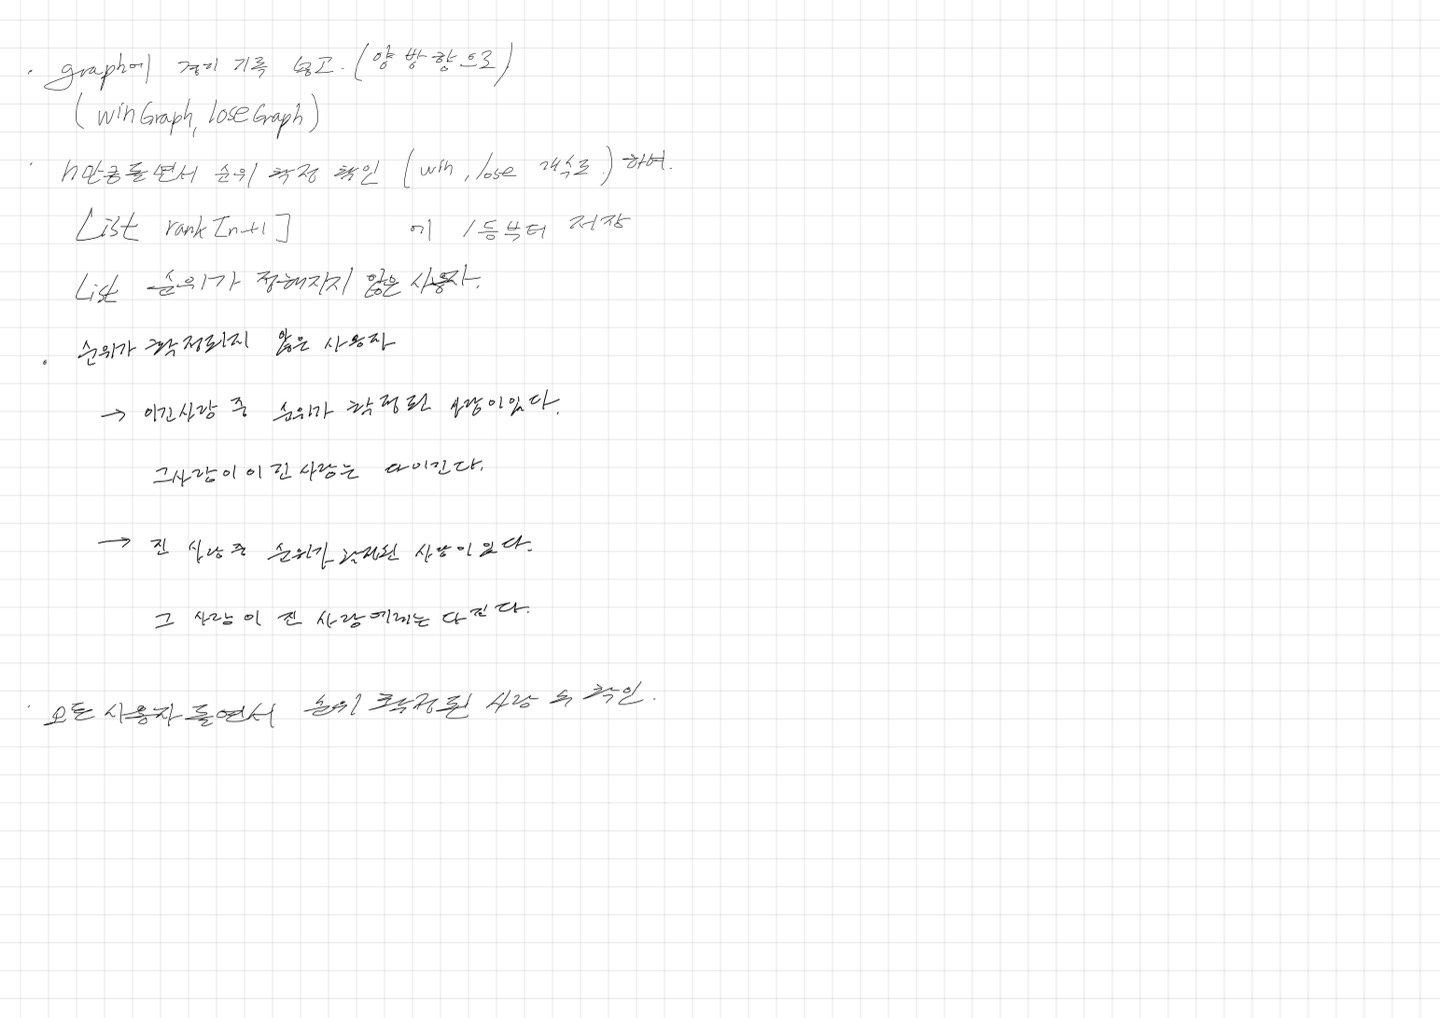 · graph에 경기 기록 넣고. (양방향으로)
(winGraph, loseGraph)
· n만큼 돌면서 순위 확정 확인 (win, lose 개수로) 하여.
List rank[n+1] 에 1등부터 저장
List 순위가 정해지지 않은 사용자.
· 순위가 확정되지 않은 사용자
→ 이긴사람 중 순위가 확정된 사람이있다.
그사람이 이긴 사람는 다이긴다.
→ 진 사람중 순위가 확정된 사람이 있다.
그 사람이 진 사람에게는 다 진다.
· 모든 사용자 돌면서 순위 확정된 사람 수 확인.